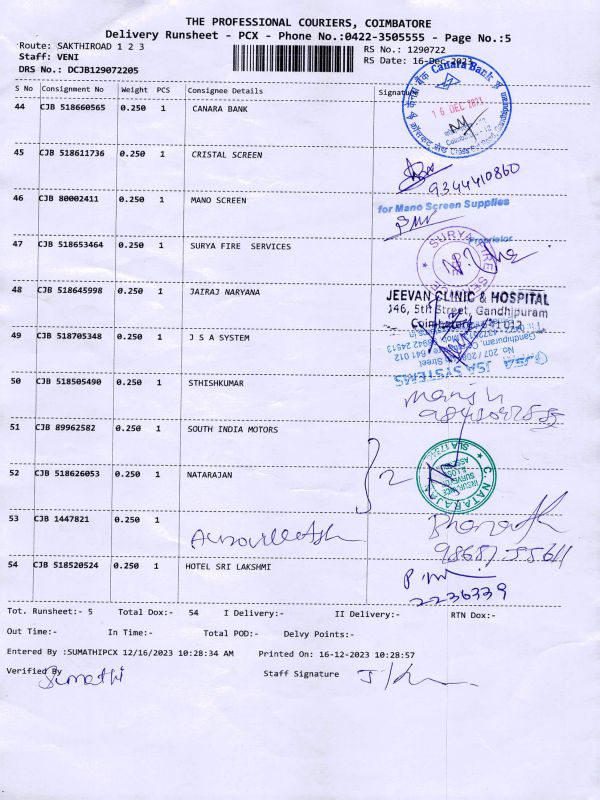 THE PROFESSIONAL COURIERS, COIMBATORE
Delivery Runsheet - PCX - Phone No.:0422-3505555 - Page No.:5
Route: SAKTHIROAD 1 2 3
RS No.: 1290722
Staff: VENI
RS Date: 16-Dec-2023
DRS No.: DCJB129072205
S No Consignment No Weight PCS Consignee Details Signature
44 CJB 518660565 0.250 1 CANARA BANK
Canara Bank
16 DEC 2023
45 CJB 518611736 0.250 1 CRISTAL SCREEN
9344410860
46 CJB 80002411 0.250 1 MANO SCREEN
for Mano Screen Supplies
Proprietor
47 CJB 518653464 0.250 1 SURYA FIRE SERVICES
SURYA FIRE
48 CJB 518645998 0.250 1 JAIRAJ NARYANA
JEEVAN CLINIC & HOSPITAL
146, 5th Street, Gandhipuram
Coimbatore - 641 012
49 CJB 518705348 0.250 1 J S A SYSTEM
JSA SYSTEMS
50 CJB 518505490 0.250 1 STHISHKUMAR
51 CJB 89962582 0.250 1 SOUTH INDIA MOTORS
52 CJB 518626053 0.250 1 NATARAJAN
2
C. NATARAJAN
INSURANCE
SURVEYOR
53 CJB 1447821 0.250 1
54 CJB 518520524 0.250 1 HOTEL SRI LAKSHMI
2236339
Tot. Runsheet:- 5 Total Dox:- 54 I Delivery:- II Delivery:- RTN Dox:-
Out Time:- In Time:- Total POD:- Delvy Points:-
Entered By :SUMATHIPCX 12/16/2023 10:28:34 AM Printed On: 16-12-2023 10:28:57
Verified By Sumathi Staff Signature